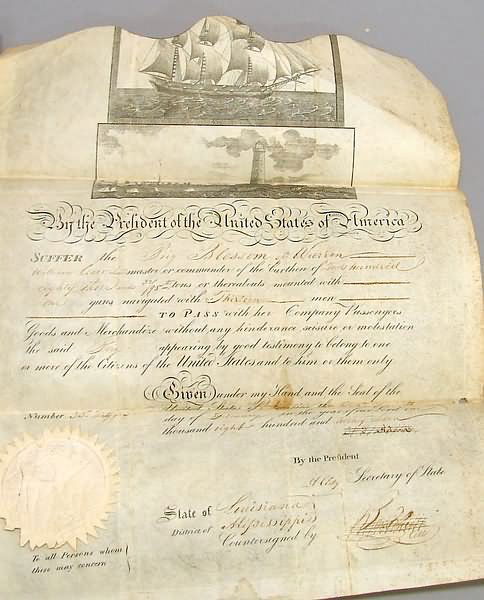 By the President of the United States of America
SUFFER the Brig Blossom of Warren
master or commander of the burthen of Two hundred
eighty tons or thereabouts mounted with
guns navigated with Thirteen men
TO PASS with her Company Passengers
Goods and Merchandize without any hinderance seisure or molestation
the said appearing by good testimony to belong to one
or more of the Citizens of the United States and to him or them only
Given under my Hand and the Seal of the
United States of
Number day of in the year of our Lord one
thousand eight hundred and
By the President
Secretary of State
State of Louisiana
District of Mississippi
Countersigned by
To all Persons whom
these may concern